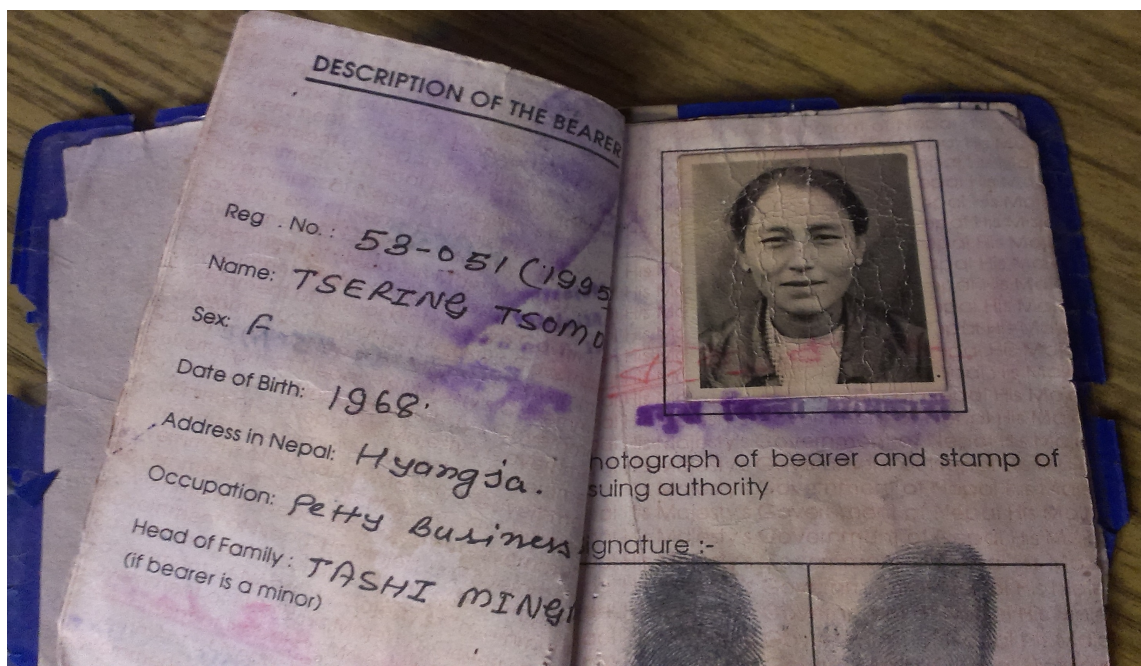 DESCRIPTION OF THE BEARER
Reg . No. : 53-051 (1995
Name: TSERING TSOMO
Sex: F
Date of Birth: 1968.
Address in Nepal: Hyangja.
Occupation: Petty Business
Head of Family : TASHI MING
(if bearer is a minor)
hotograph of bearer and stamp of
suing authority
ignature :-